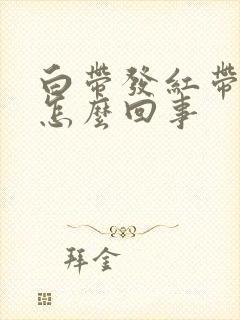 白帶發紅帶
怎麼回事
拜金